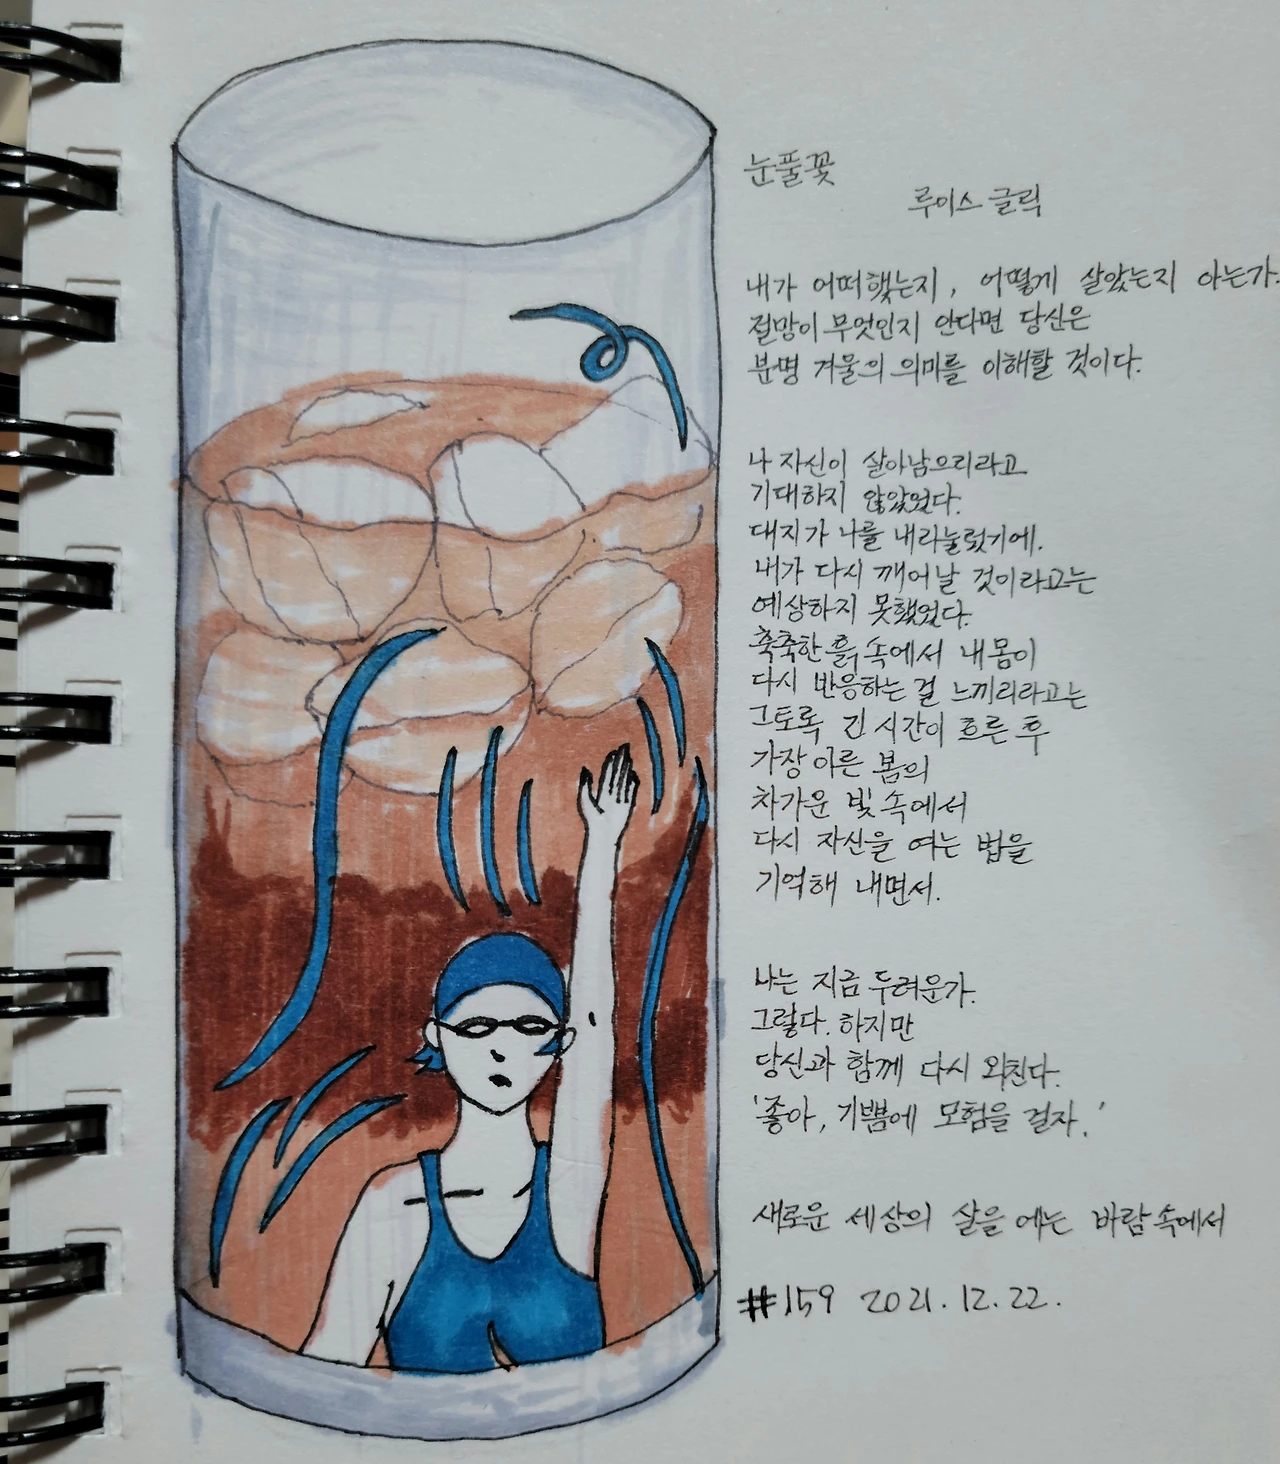 눈풀꽃
루이스 글릭
내가 어떠했는지, 어떻게 살았는지 아는가.
절망이 무엇인지 안다면 당신은
분명 겨울의 의미를 이해할 것이다.
나 자신이 살아남으리라고
기대하지 않았었다.
대지가 나를 내리눌렀기에.
내가 다시 깨어날 것이라고는
예상하지 못했었다.
축축한 흙 속에서 내 몸이
다시 반응하는 걸 느끼리라고는
그토록 긴 시간이 흐른 후
가장 이른 봄의
차가운 빛 속에서
다시 자신을 여는 법을
기억해 내면서.
나는 지금 두려운가.
그렇다. 하지만
당신과 함께 다시 외친다.
'좋아, 기쁨에 모험을 걸자.'
새로운 세상의 살을 에는 바람 속에서
#159 2021. 12. 22.